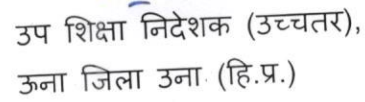 उप शिक्षा निदेशक (उच्चतर),
ऊना जिला उना. (हि.प्र.)